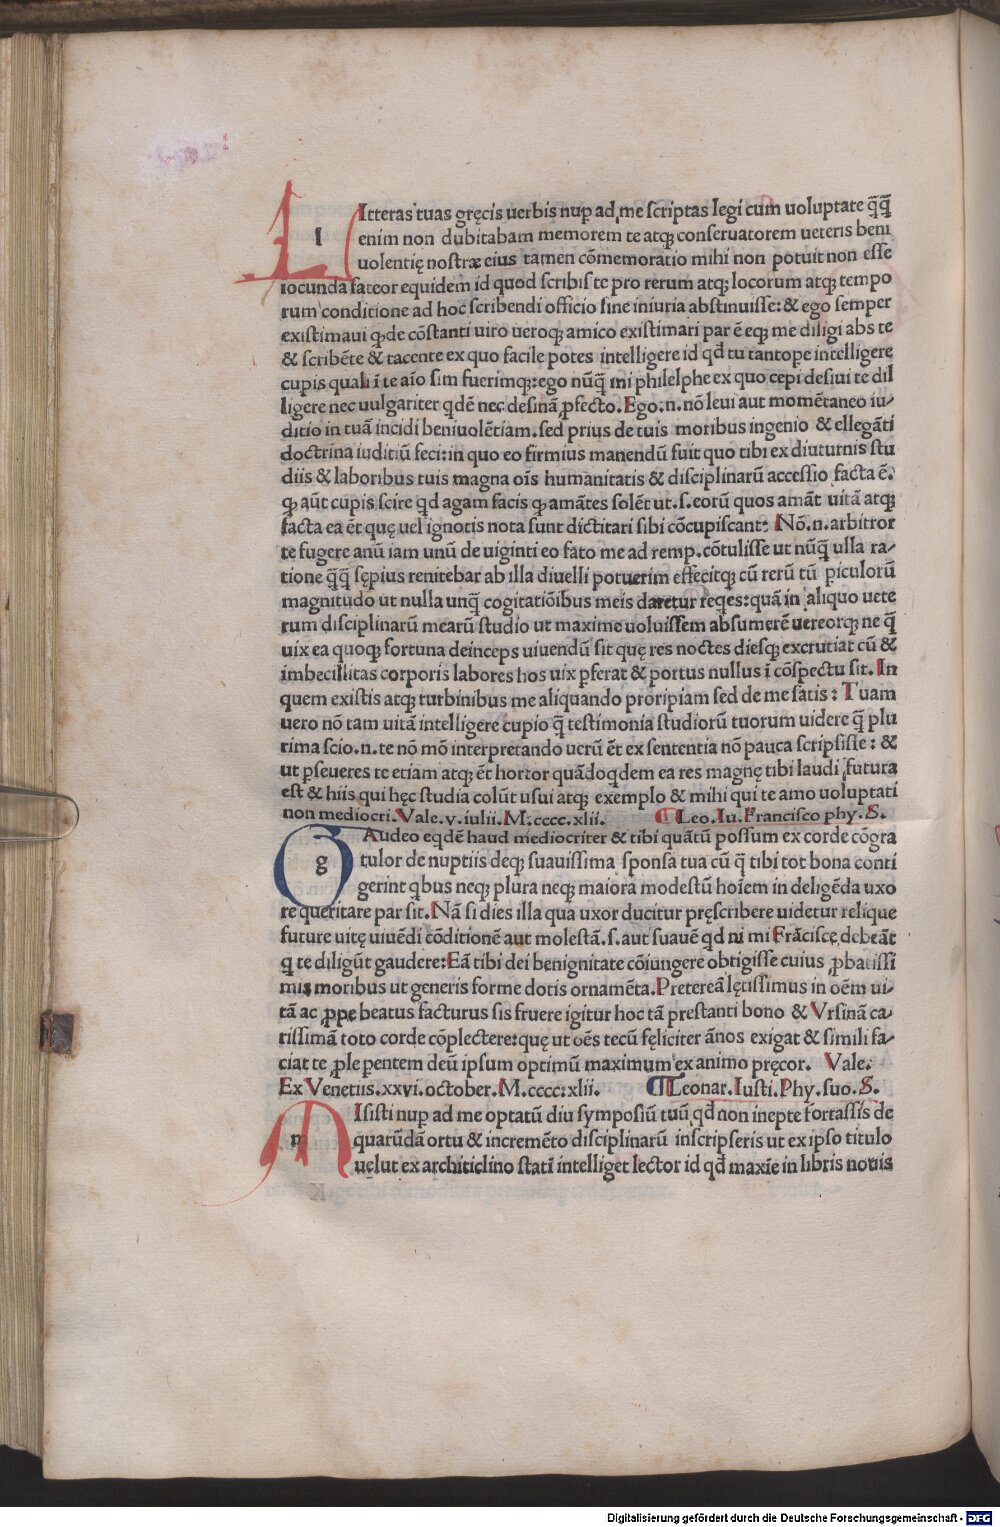 LItteras tuas gręcis uerbis nup ad me ſcriptas legi cum uoluptate q̄q̄
enim non dubitabam memorem te atqꝫ conſeruatorem ueteris beni
uolentię noſtræ eius tamen cōmemoratio mihi non potuit non eſſe
iocunda fateor equidem id quod ſcribiſ te pro rerum atqꝫ locorum atqꝫ tempo
rum conditione ad hoc ſcribendi officio ſine iniuria abſtinuiſſe: & ego ſemper
exiſtimaui qꝫ de cōſtanti uiro ueroqꝫ amico exiſtimari par ē eqꝫ me diligi abs te
& ſcribēte & tacente ex quo facile potes intelligere id qđ tu tantope intelligere
cupis quali ī te aīo ſim fuerimqꝫ: ego nūq̄ mi philelphe ex quo cepi deſiui te dil
ligere nec uulgariter qdē nec deſinā ꝓfecto. Ego .n. nō leui aut momētaneo iu-
ditio in tuā incidi beniuolētiam. ſed prius de tuis moribus ingenio & ellegāti
doctrina iuditiū feci: in quo eo firmius manendū fuit quo tibi ex diuturnis ſtu
diis & laboribus tuis magna oīs humanitatis & diſciplinarū acceſſio facta ē.
qꝫ aūt cupis ſcire qđ agam facis qꝫ amātes ſolēt ut .ſ. eorū quos amāt uitā atqꝫ
facta ea ēt quę uel ignotis nota ſunt dictitari ſibi cōcupiſcant: Nō .n. arbitror
te fugere anū iam unū de uiginti eo fato me ad remp. cōtuliſſe ut nūq̄ ulla ra-
tione q̄q̄ ſępius renitebar ab illa diuelli potuerim effecitqꝫ cū rerū tū piculorū
magnitudo ut nulla unq̄ cogitatiōibus meis daretur reqes: quā in aliquo uete
rum diſciplinarū mearū ſtudio ut maxime uoluiſſem abſumerē uereorqꝫ ne q̄
uix ea quoqꝫ fortuna deinceps uiuendū ſit quę res noctes dieſqꝫ excrutiat cū &
imbecillitas corporis labores hos uix pferat & portus nullus ī cōſpectu ſit. In
quem exiſtis atqꝫ turbinibus me aliquando proripiam ſed de me ſatis: Tuam
uero nō tam uitā intelligere cupio q̄ teſtimonia ſtudiorū tuorum uidere q̄ plu
rima ſcio .n. te nō mō interpretando uerū ēt ex ſententia nō pauca ſcripſiſſe: &
ut pſeueres te etiam atqꝫ ēt hortor quādoqdem ea res magnę tibi laudi futura
eſt & hiis qui hęc ſtudia colūt uſui atqꝫ exemplo & mihi qui te amo uoluptati
non mediocri. Vale. v. iulii. M.cccc.xlii. ¶ Leo. Iu. Franciſco phy. S.
GAudeo eqdē haud mediocriter & tibi quātū poſſum ex corde cōgra
tulor de nuptiis deqꝫ ſuauiſſima ſponſa tua cū q̄ tibi tot bona conti
gerint qbus neqꝫ plura neqꝫ maiora modeſtū hoīem in deligēda uxo
re queritare par ſit. Nā ſi dies illa qua uxor ducitur pręſcribere uidetur relique
future uitę uiuēdi cōditionē aut moleſtā .ſ. aut ſuauē qđ ni mi Frāciſce debeāt
q te diligūt gaudere: Eā tibi dei benignitate cōiungere obtigiſſe cuius ꝓbatiſſi
mis moribus ut generis forme dotis ornamēta. Pretereā lętiſſimus in oēm ui-
tā ac ꝓpe beatus facturus ſis fruere igitur hoc tā preſtanti bono & Vrſinā ca-
riſſimā toto corde cōplectere: quę ut oēs tecū fęliciter ānos exigat & ſimili fa-
ciat te ꝓle pentem deū ipſum optimū maximum ex animo pręcor. Vale.
Ex Venetiis. xxvi. october. M.cccc.xlii. ¶ Leonar. Iuſti. Phy. ſuo. S.
MIſiſti nup ad me optatū diu ſympoſiū tuū qđ non inepte fortaſſis de
quarūdā ortu & incremēto diſciplinarū inſcripſeris ut ex ipſo titulo
uęlut ex architiclino ſtati intelliget lector id qđ maxīe in libris nouis
Digitalisierung gefördert durch die Deutsche Forschungsgemeinschaft - DFG